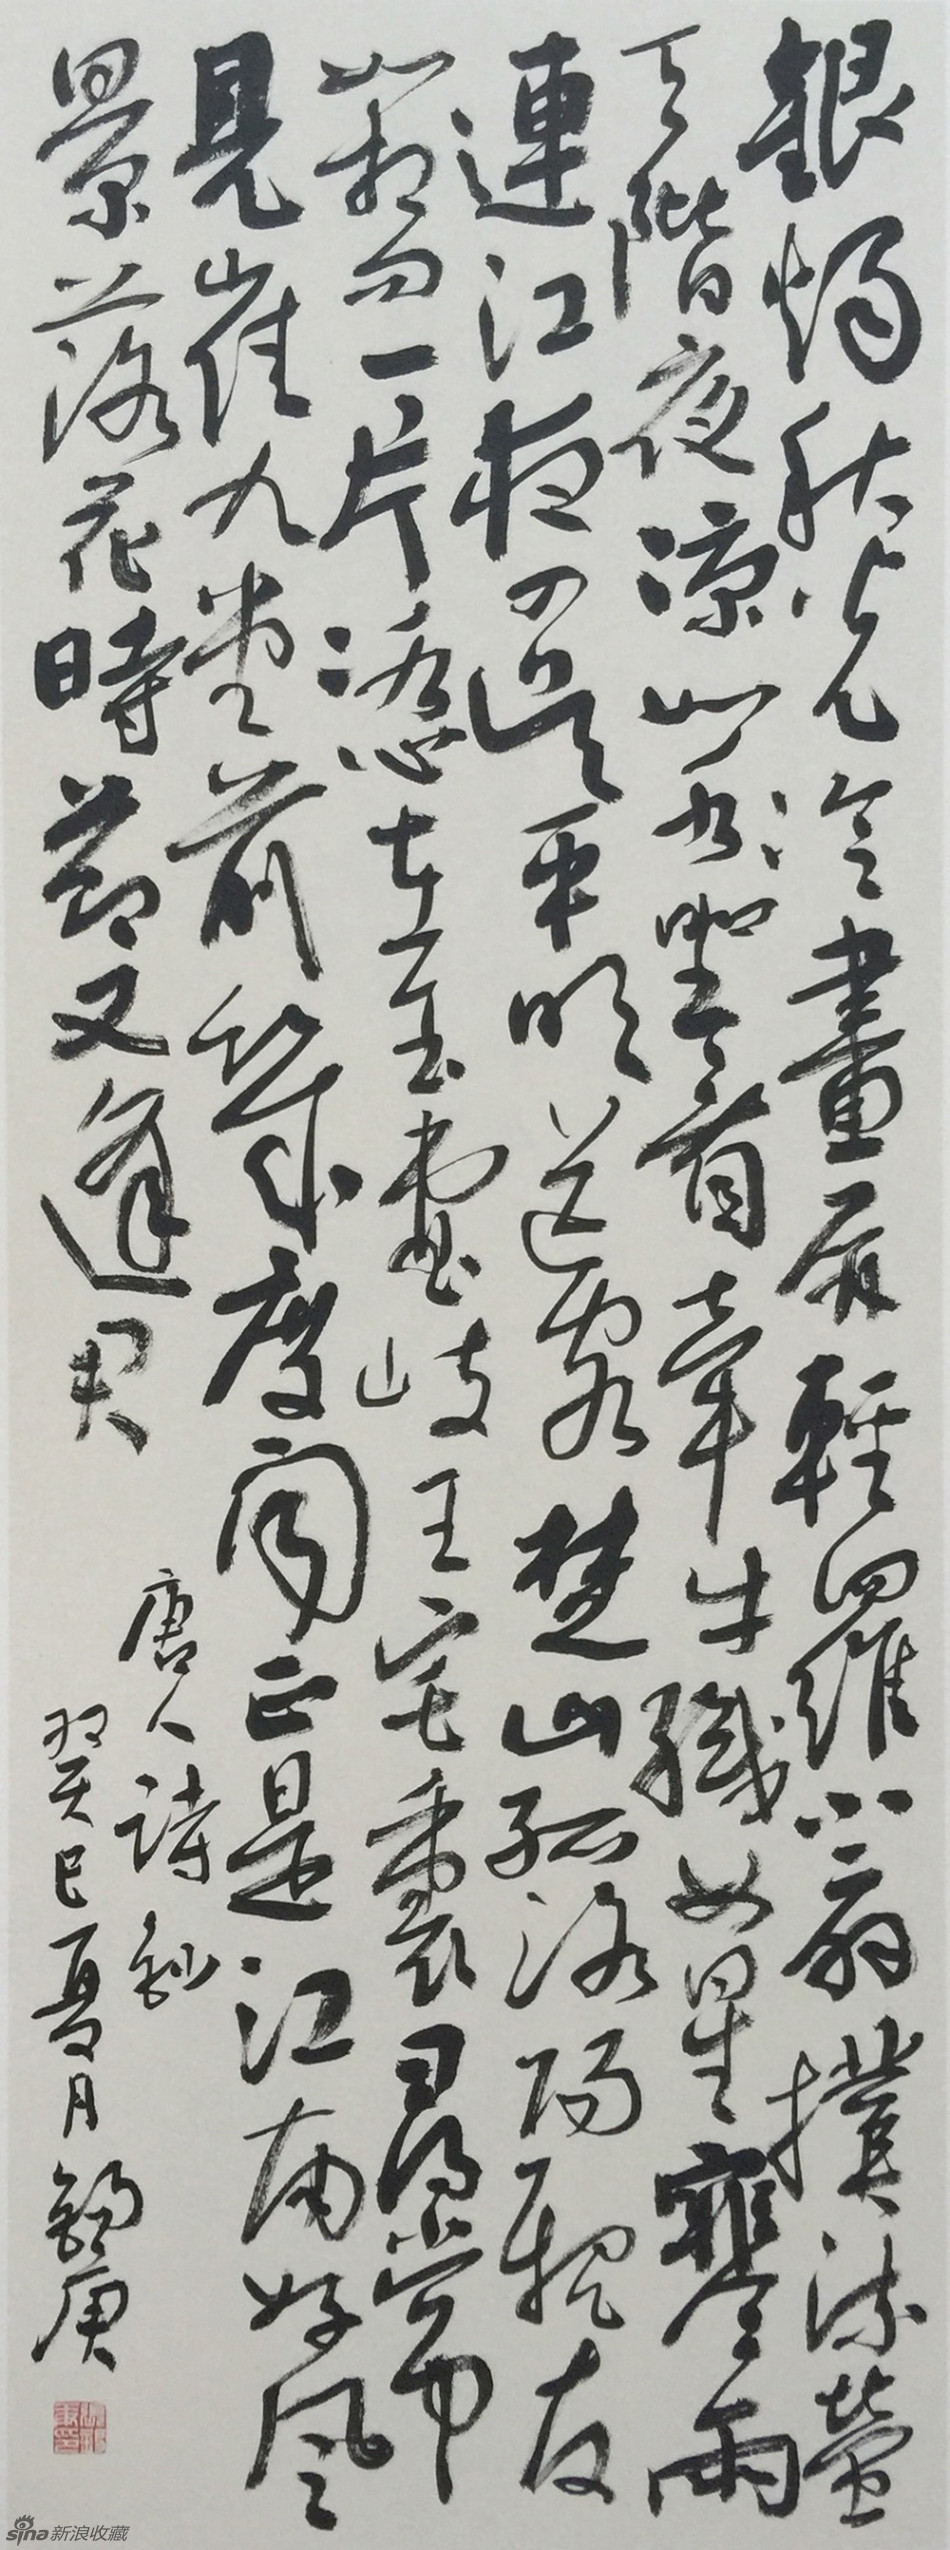 銀燭秋光冷畫屏輕羅小扇撲流螢
天階夜涼如水坐看牽牛織女星寒雨
連江夜入吳平明送客楚山孤洛陽親友
如相問一片冰心在玉壺岐王宅裏尋常
見崔九堂前幾度聞正是江南好風
景落花時節又逢君
唐人詩鈔
癸巳夏月 庚
sina新浪收藏